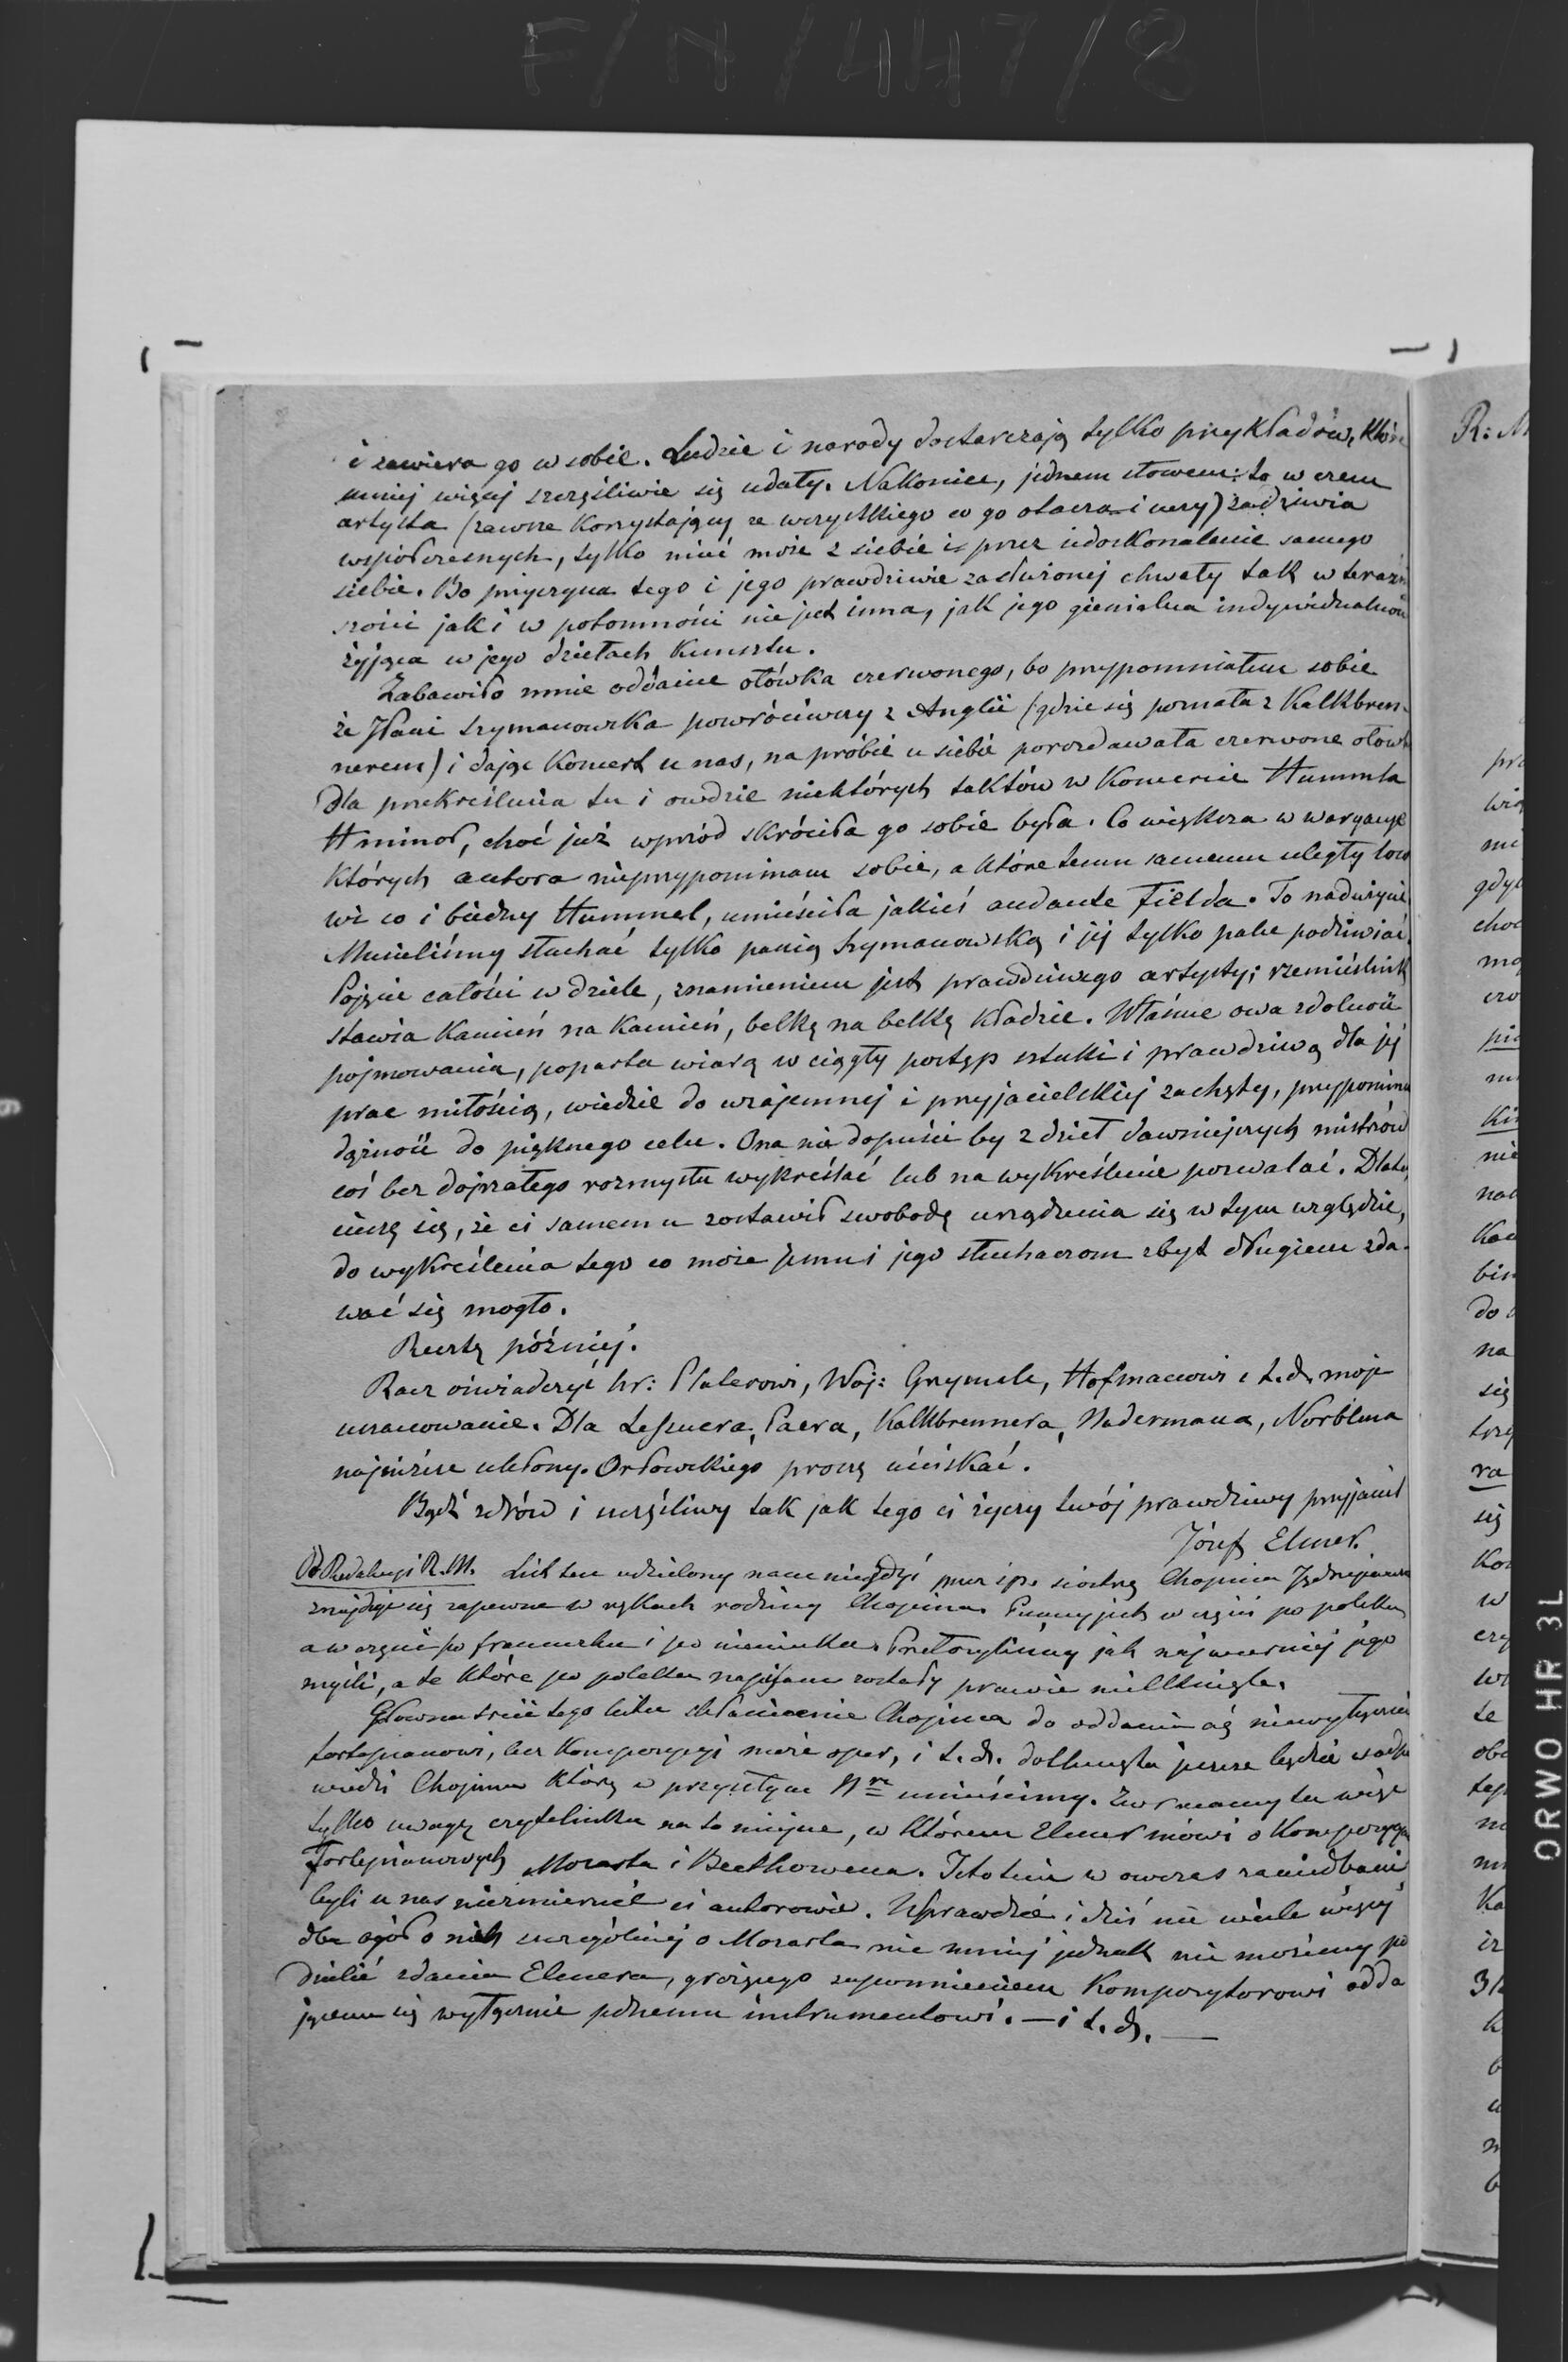 F/N/447/8
i zawiera go w sobie. Ludzie i narody dostarczają tylko przykładów, które
mniej więcej szczęśliwie się udały. Nakoniec, jednem słowem: to w czem
artysta (zawsze korzystający ze wszystkiego co go otacza i uczy) zadziwia
współczesnych, tylko mieć może z siebie i przez udoskonalenie samego
siebie. Bo przyczyna tego i jego prawdziwie zasłużonej chwały tak w teraźn
szości jak i w potomności nie jest inna, jak jego gienialna indywidualność
żyjąca w jego dziełach kunsztu.
Zabawiło mnie oddanie ołówka czerwonego, bo przypomniałem sobie
że Pani Szymanowska powróciwszy z Anglii (gdzie się poznała z Kalkbren-
nerem) i dając Koncert u nas, na próbie u siebie porozdawała czerwone ołówk
dla przekreślenia tu i owdzie niektórych taktów w Koncercie Hummla
H minol, choć już wprzód skróciła go sobie była. Co większa w waryacye
których autora nieprzypominam sobie, a które temu samemu uległy loso
wi co i biedny Hummel, umieściła jakieś andante Fielda. To nadużycie
Musieliśmy słuchać tylko panią Szymanowską i jej tylko palce podziwiać.
Pojęcie całości w dziele, znamieniem jest prawdziwego artysty; rzemieślnik
stawia kamień na kamień, belkę na belkę kładzie. Właśnie owa zdolność
pojmowania, poparta wiarą w ciągły postęp sztuki i prawdziwą dla jej
prac miłością, wiedzie do wzajemnej i przyjacielskiej zachęty, przypomina
dążność do pięknego celu. Ona nie dopuści by z dzieł dawniejszych mistrzów
coś bez dojrzałego rozmysłu wykreślać lub na wykreślenie pozwalać. Dlateg
cieszę się, że ci samemu zostawił swobodę urządzenia się w tym względzie,
do wykreślenia tego co może jemu i jego słuchaczom zbyt długiem zda-
wać się mogło.
Resztę później.
Racz oświadczyć hr: Platerowi, Woj: Grzymale, Hofmanowi i t.d. moje
uszanowanie. Dla Lesueura, Paera, Kalkbrennera, Nadermana, Norblina
najniższe ukłony. Orłowskiego proszę uściskać.
Bądź zdrów i szczęśliwy tak jak tego ci życzy twój prawdziwy przyjaciel
Józef Elsner.
Od Redakcyi R.M. List ten udzielony nam niegdyś przez śp. siostrę Chopina Jędrzejewicz
znajduje się zapewne w rękach rodziny Chopina. Pisany jest w części po polsku
a w części po francuzku i po niemiecku. Przełożyliśmy jak najwierniej jego
myśli, a te które po polsku napisane zostały prawie nietknięte.
Główna treść tego listu skłanianie Chopina do oddania się niewyłącznie
fortepianowi, lecz kompozycyi może oper, i t.d. dotknięta jeszcze będzie w odpo
wiedzi Chopina którą w przyszłym Nrze umieścimy. Zwracamy tu więc
tylko uwagę czytelnika na to miejsce, w którem Elsner mówi o kompozycyach
fortepianowych Mozarta i Beethowena. Istotnie w owczas zaniedbani
byli u nas niezmiernie ci autorowie. Wprawdzie i dziś nie wiele więcej
dba ogół o nich szczególniej o Mozarta nie mniej jednak nie możemy po
dzielić zdania Elsnera, grożącego zapomnieniem kompozytorowi odda
jącemu się wyłącznie jednemu instrumentowi. — i t.d. —
R: M
ORWO HR 3L